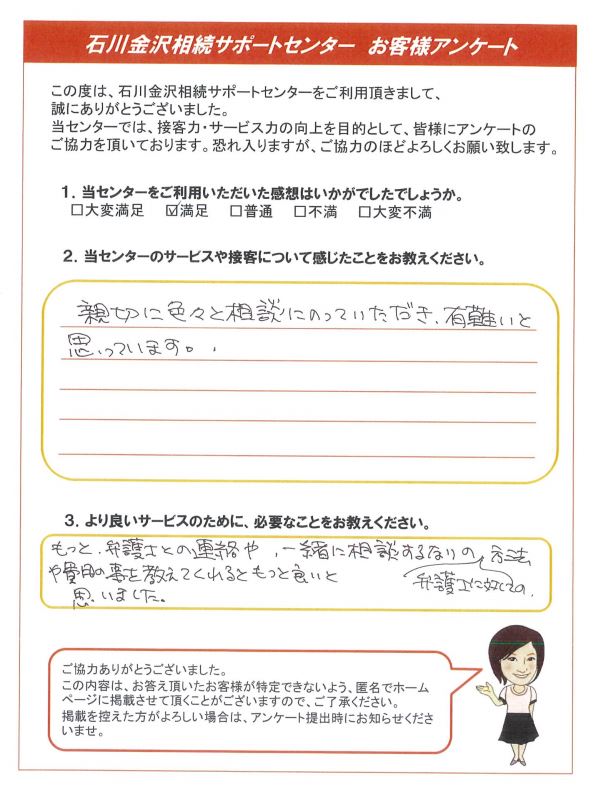 石川金沢相続サポートセンター お客様アンケート
この度は、石川金沢相続サポートセンターをご利用頂きまして、
誠にありがとうございました。
当センターでは、接客力・サービス力の向上を目的として、皆様にアンケートの
ご協力を頂いております。恐れ入りますが、ご協力のほどよろしくお願い致します。
1. 当センターをご利用いただいた感想はいかがでしたでしょうか。
□大変満足 ☑満足 □普通 □不満 □大変不満
2. 当センターのサービスや接客について感じたことをお教えください。
親切に色々と相談にのっていただき、有難いと
思っています。
3. より良いサービスのために、必要なことをお教えください。
もっと、弁護士との連絡や、一緒に相談するなりの方法
や費用の事を教えてくれるともっと良いと
弁護士に対しての、
思いました。
ご協力ありがとうございました。
この内容は、お答え頂いたお客様が特定できないよう、匿名でホーム
ページに掲載させて頂くことがございますので、ご了承ください。
掲載を控えた方がよろしい場合は、アンケート提出時にお知らせくださ
いませ。